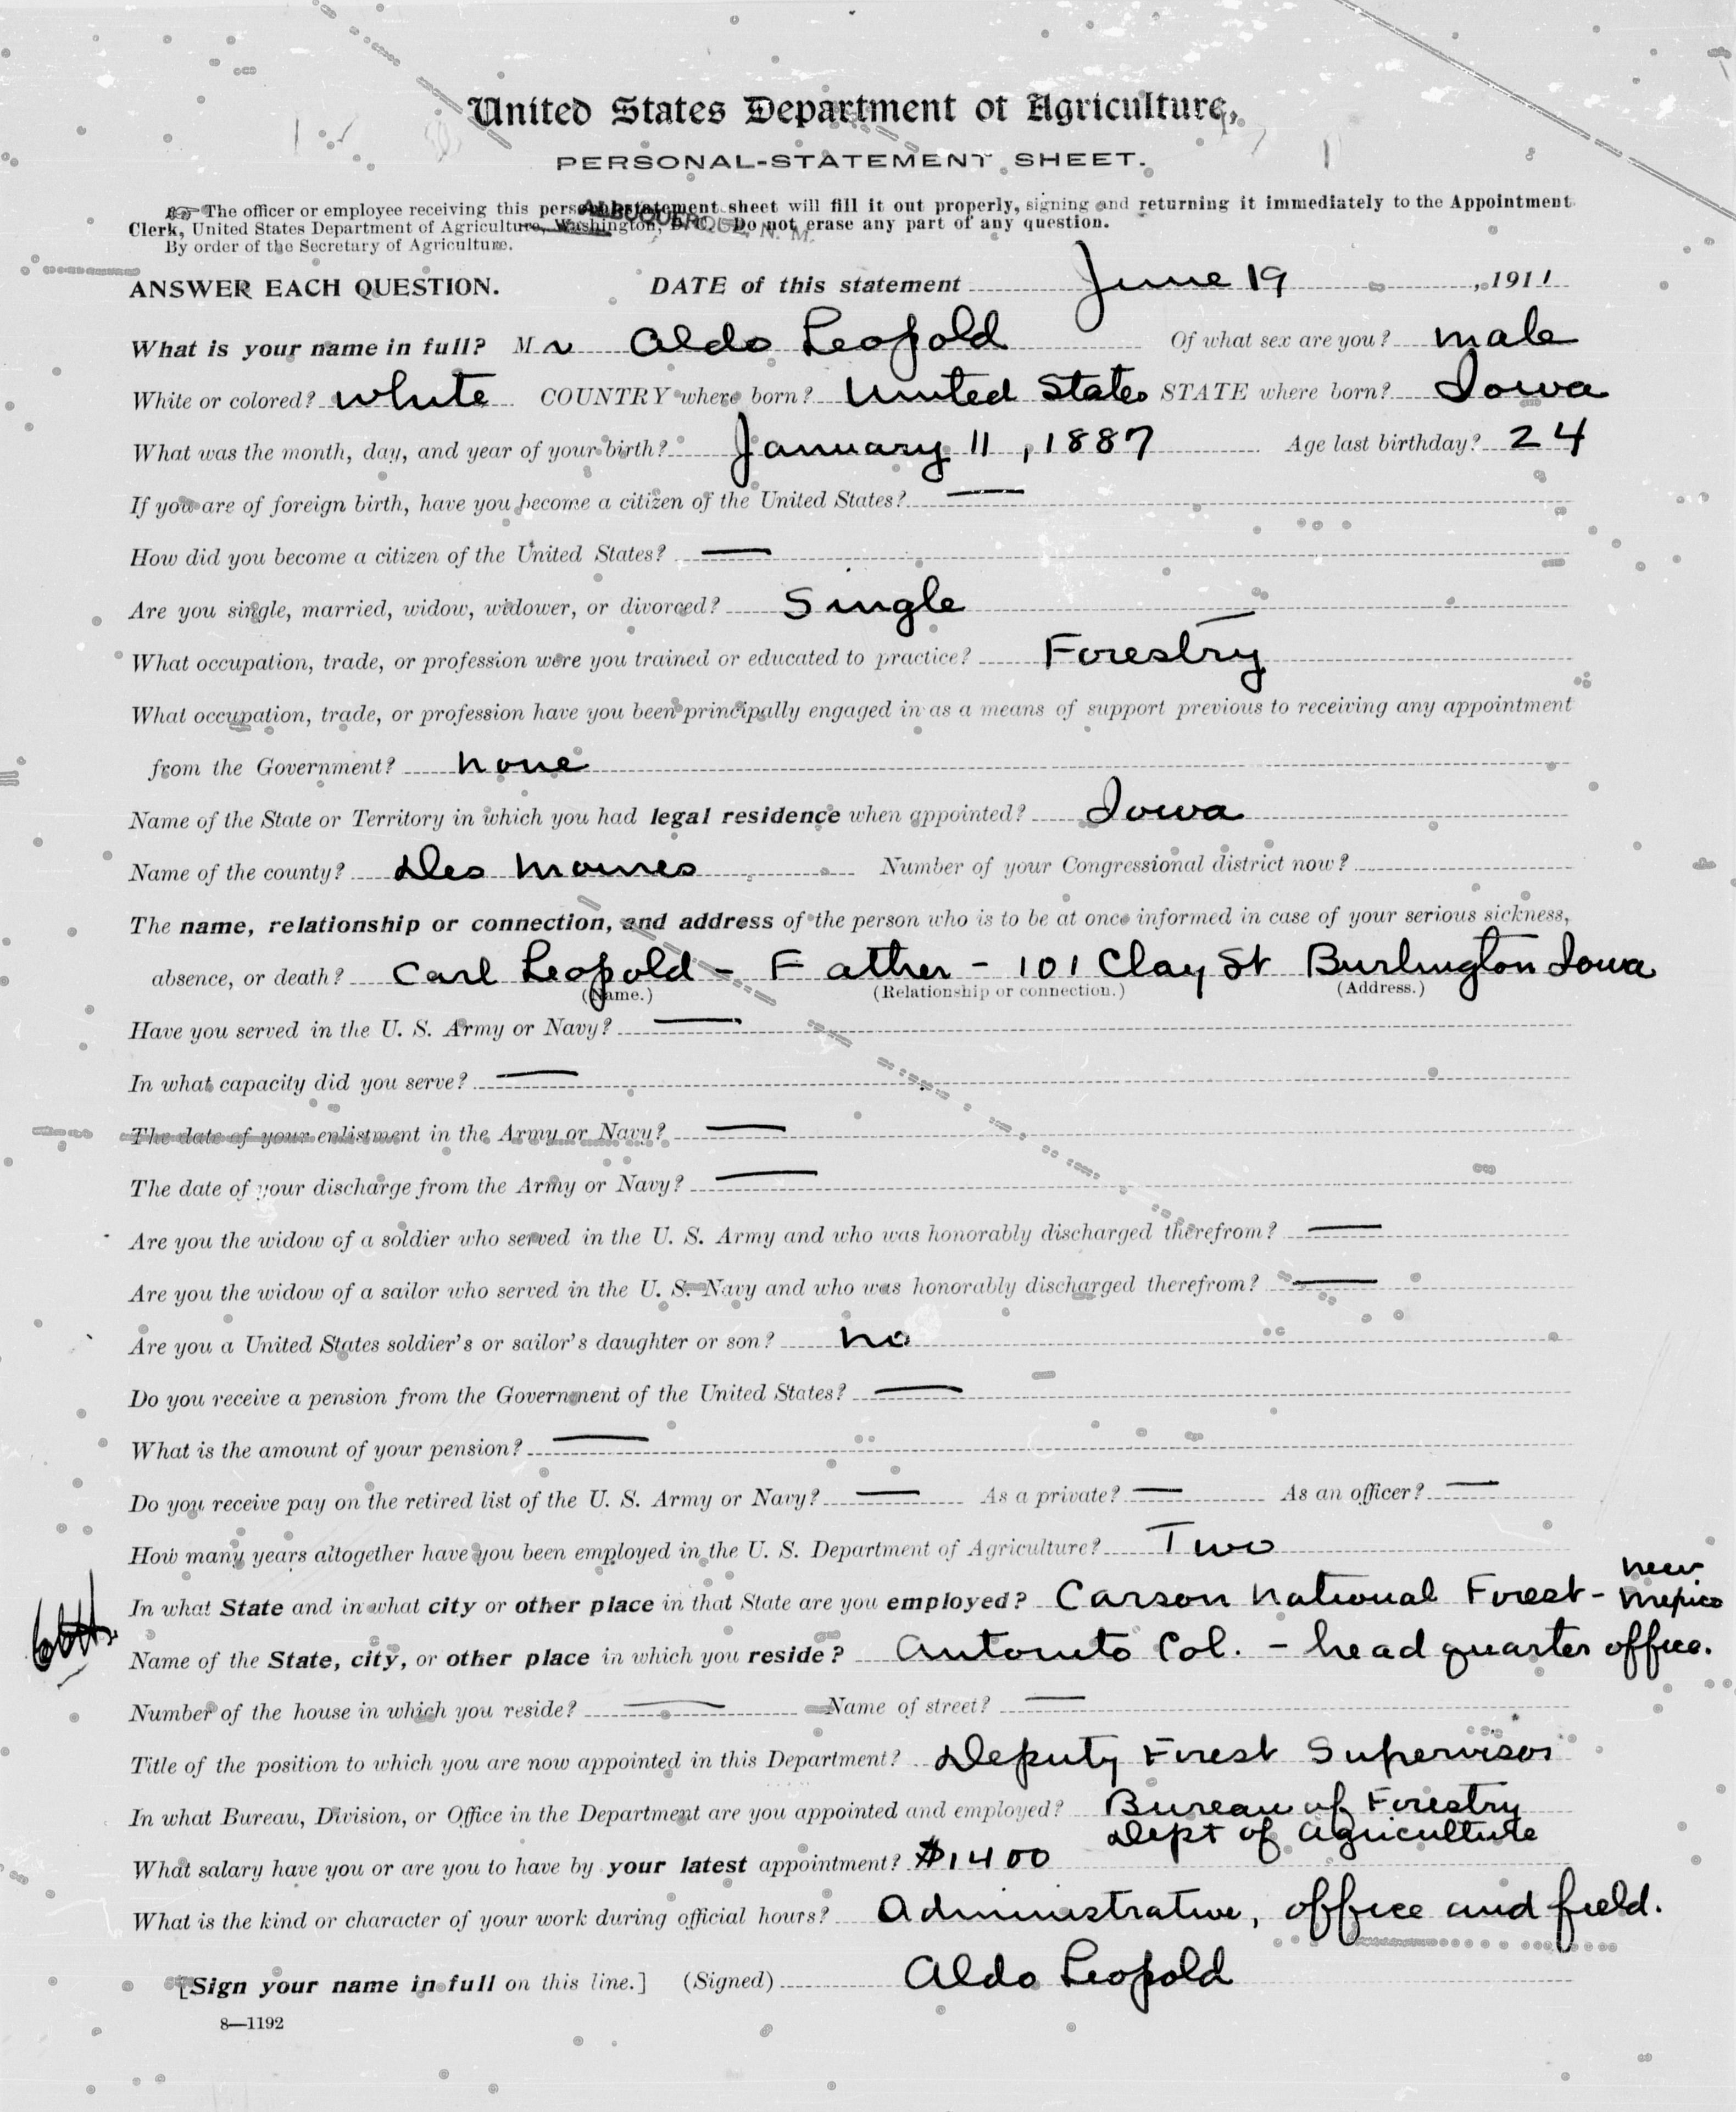 United States Department of Agriculture,
PERSONAL-STATEMENT SHEET.
☞ The officer or employee receiving this personal-statement sheet will fill it out properly, signing and returning it immediately to the Appointment
Clerk, United States Department of Agriculture, Washington, D. C. Do not erase any part of any question.
ALBUQUERQUE, N. M.
By order of the Secretary of Agriculture.
ANSWER EACH QUESTION. DATE of this statement June 19, 1911
What is your name in full? Mr Aldo Leopold Of what sex are you? male
White or colored? white COUNTRY where born? United States STATE where born? Iowa
What was the month, day, and year of your birth? January 11, 1887 Age last birthday? 24
If you are of foreign birth, have you become a citizen of the United States? —
How did you become a citizen of the United States? —
Are you single, married, widow, widower, or divorced? Single
What occupation, trade, or profession were you trained or educated to practice? Forestry
What occupation, trade, or profession have you been principally engaged in as a means of support previous to receiving any appointment
from the Government? none
Name of the State or Territory in which you had legal residence when appointed? Iowa
Name of the county? Des Moines Number of your Congressional district now?
The name, relationship or connection, and address of the person who is to be at once informed in case of your serious sickness,
absence, or death? Carl Leopold - Father - 101 Clay St Burlington Iowa
(Name.) (Relationship or connection.) (Address.)
Have you served in the U. S. Army or Navy? —
In what capacity did you serve? —
The date of your enlistment in the Army or Navy? —
The date of your discharge from the Army or Navy? —
Are you the widow of a soldier who served in the U. S. Army and who was honorably discharged therefrom? —
Are you the widow of a sailor who served in the U. S. Navy and who was honorably discharged therefrom? —
Are you a United States soldier's or sailor's daughter or son? no
Do you receive a pension from the Government of the United States? —
What is the amount of your pension? —
Do you receive pay on the retired list of the U. S. Army or Navy? — As a private? — As an officer? —
How many years altogether have you been employed in the U. S. Department of Agriculture? Two
In what State and in what city or other place in that State are you employed? Carson National Forest - New Mexico
Name of the State, city, or other place in which you reside? Antonito Col. - headquarter office.
Number of the house in which you reside? — Name of street? —
Title of the position to which you are now appointed in this Department? Deputy Forest Supervisor
In what Bureau, Division, or Office in the Department are you appointed and employed? Bureau of Forestry
Dept of Agriculture
What salary have you or are you to have by your latest appointment? $1400
What is the kind or character of your work during official hours? Administrative, office and field.
[Sign your name in full on this line.] (Signed) Aldo Leopold
8—1192